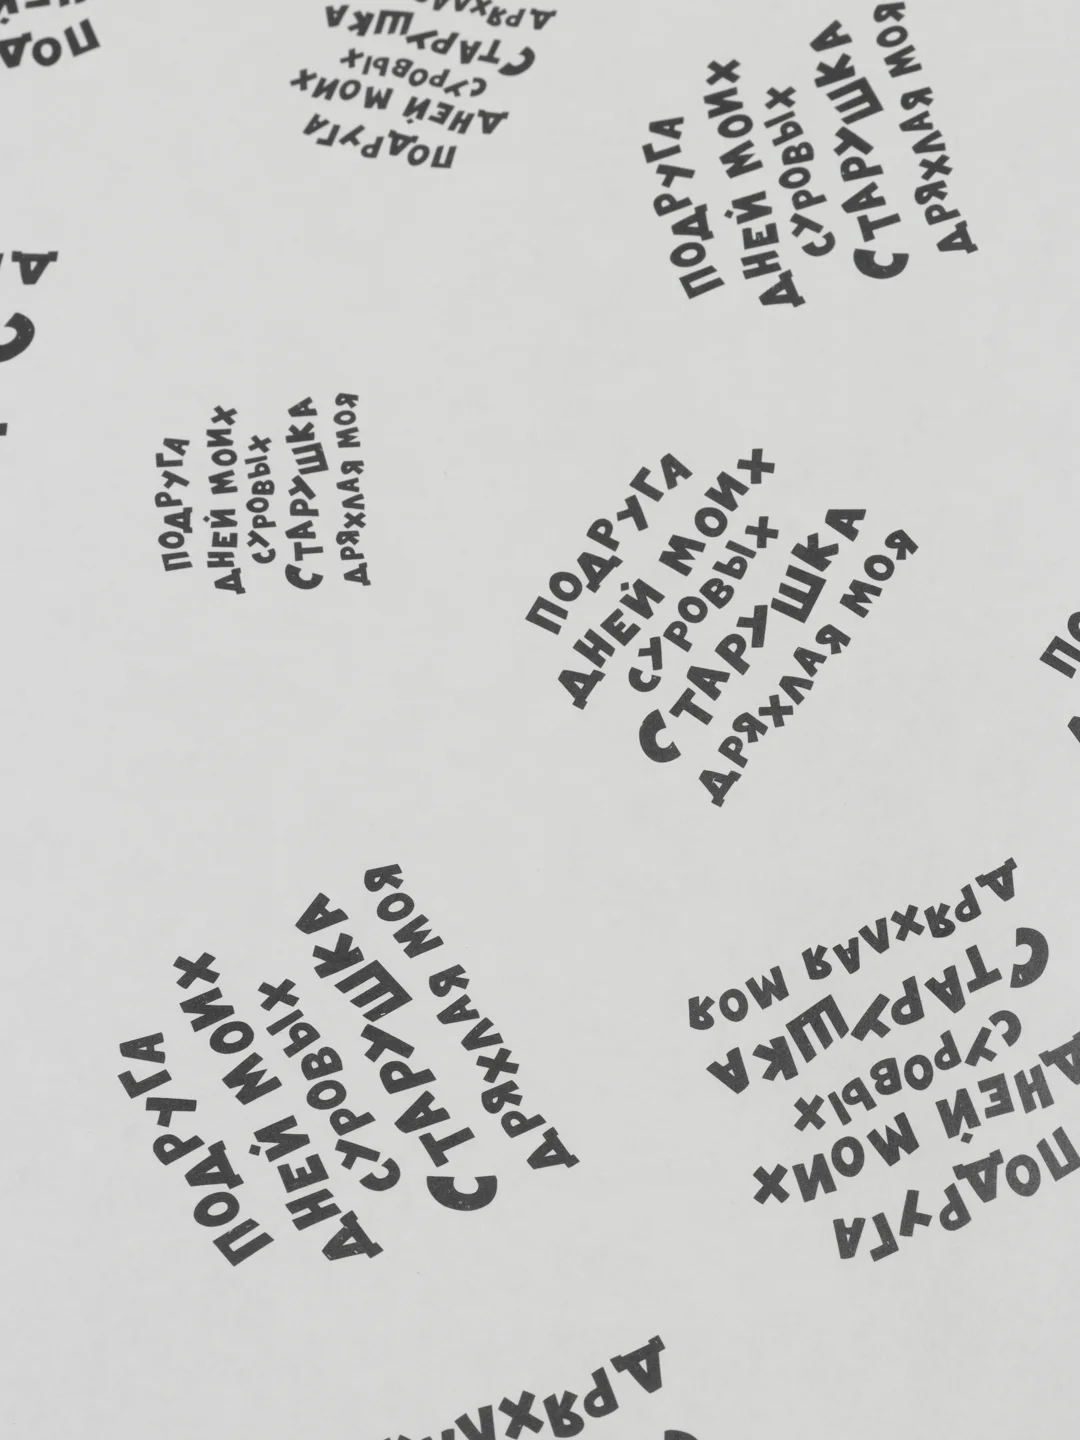 ПОДРУГА
ДНЕЙ МОИХ
СУРОВЫХ
СТАРУШКА
ДРЯХЛАЯ
ПОДРУГА
ДНЕЙ МОИХ
СУРОВЫХ
СТАРУШКА
ДРЯХЛАЯ МОЯ
ПОДРУГА
ДНЕЙ МОИХ
СУРОВЫХ
СТАРУШКА
ДРЯХЛАЯ МОЯ
ПОДРУГА
ДНЕЙ МОИХ
СУРОВЫХ
СТАРУШКА
ДРЯХЛАЯ МОЯ
ПОДРУГА
ДНЕЙ МОИХ
СУРОВЫХ
СТАРУШКА
ДРЯХЛАЯ МОЯ
ПОДРУГА
ДНЕЙ МОИХ
СУРОВЫХ
СТАРУШКА
ДРЯХЛАЯ МОЯ